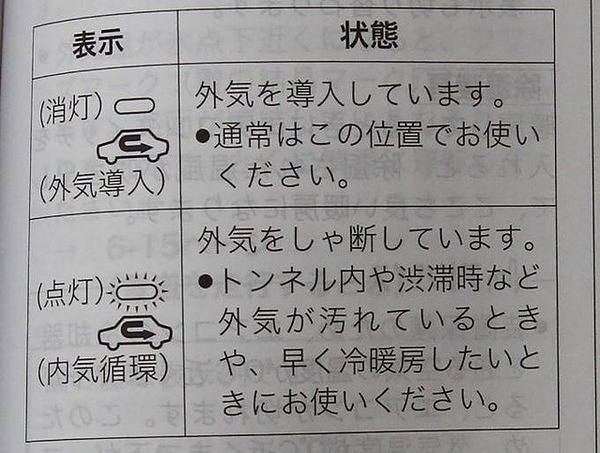 表示
状態
(消灯)
(外気導入)
外気を導入しています。
●通常はこの位置でお使い
ください。
(点灯)
(内気循環)
外気をしゃ断しています。
●トンネル内や渋滞時など
外気が汚れているとき
や、早く冷暖房したいと
きにお使いください。